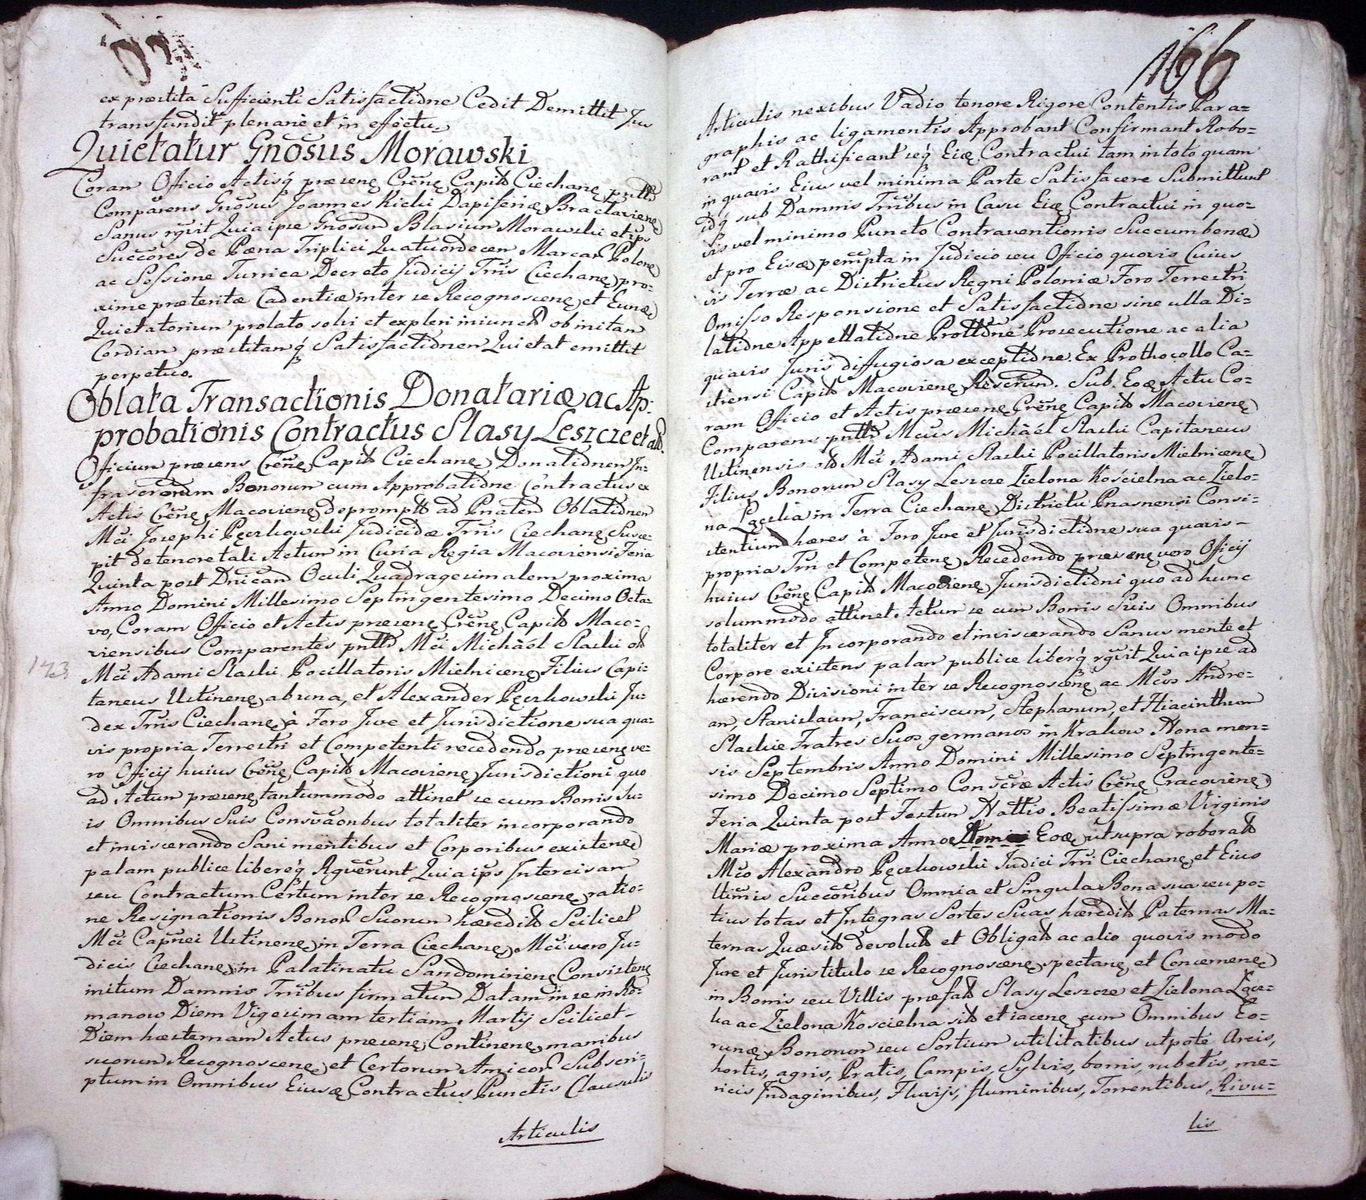 166
ex præstita Sufficienti Satisfactione Cedit Demittit Jus
transfundit plenarie et in effectu.
Quietatur Gnosus Morawski
Coram Officio Actisq præsenę Crenę Capit Ciechanę
Comparens Gnosus Joannes Kicki Dapiferiæ Braclavienę
Sanus Quia ipse Gnosum Blasium Morawski et ips
Succres de Pæna Triplici Quatuordecem Marcar Polonę
ac Sessione Turrica Decreto Judicij Trris Ciechanę pro-
xime præteritæ Cadentiæ inter se Recognoscenę et Eund
Quietatorium prolato solvi et expleri iniunct ob initam
Cordiam præstitamq Satisfactionem Quietat emittit
perpetuo.
Oblata Transactionis Donatariæ ac Ap-
probationis Contractus Slasy Leszcze et
Officium præsens Crenę Capit Ciechanę Donationem In-
frascrorum Bonorum cum Approbatione Contractus ex
Actis Crenę Macovienę depromptt ad Pnatem Oblationem
Mci Josephi Pęczkowski Judicidæ Trris Ciechanę Susce-
pit de tenore tali Actum in Curia Regia Macoviensi Feria
Quinta post Dnicam Oculi Quadragesimalem proxima
Anno Domini Millesimo Septingentesimo Decimo Octa-
vo, Coram Officio et Actis præsenę Crenę Capit Maco-
viensibus Comparentes Mci Michaël Slaski
Mci Adami Slaski Pocillatoris Mielnicenę Filius Capi-
taneus Ustinenę ab una, et Alexander Pęczkowski Ju-
dex Trris Ciechanę à Foro Jure et Jurisdictione sua qua-
vis propria Terrestri et Competenti recedendo præsenę ve-
ro Officij huius Crenę Capit Macovienę Jurisdictioni quo
ad Actum præsenę tantummodo attinet se cum Bonis Su-
is Omnibus Suis Consuaonbus totaliter incorporando
et inviscerando Sani mentibus et Corporibus existenę
palam publice libereq Rgverunt Quia ips Intercisam
seu Contractum Certum inter se Recognoscenę ratio-
ne Resignationis Bonor Suorum hæredit Scilicet
Mci Capnei Ustinenę in Terra Ciechanę Mci vero Ju-
dicis Ciechanę in Palatinatu Sandomirienę Consistenę
initum Damnis Trribus firmatum Datam in se in Ro-
manow Diem Vigesimam tertiam Martij Scilicet
Diem hæsternam Actus præsenę Continenę manibus
suorum Recognoscenę et Certorum Amicor Subscri-
ptum in Omnibus Eiusq Contractus Punctis Clausulis
Articulis
173
Articulis nexibus Vadio tenore Rigore Contentis Para-
graphis ac ligamentis Approbant Confirmant Robo-
rant et Rathificant seq Eiæ Contractui tam in toto quam
in quavis Eius vel minima Parte Satisfacere Submittunt
idq sub Damnis Trribus in Casu Eiæ Contractui in quo-
vis vel minimo Puncto Contraventionis Succumbenę
et pro Eisæ perempta in Judicio seu Officio quovis Cuius
vis Terræ ac Districtus Regni Poloniæ Foro Terrestri
Omisso Responsione et Satisfactione sine ulla Di-
latione Appellatione Prottne Prosecutione ac alia
quavis Juris diffugiosa exceptione. Ex Prothocollo Ca-
stiensi Capit Macovienę Rescrun. Sub Eoæ Actu Co-
ram Officio et Actis præsenę Crenę Capit Macovienę
Comparens Mcus Michaël Slaski Capitaneus
Ustinensis Mci Adami Slaski Pocillatoris Mielnicenę
Filius Bonorum Slasy Leszcze Zielona Kościelna ac Zielo-
na Łącka in Terra Ciechanę Districtu Prasnensi Consi-
stentium hæres à Foro Jure et Jurisdictione sua quavis
propria Trri et Competenę Recedendo præsenę vero Officij
huius Crenę Capit Macovienę Jurisdictioni quo ad hunc
solummodo attinet Actum se cum Bonis Suis Omnibus
totaliter et Incorporando et inviscerando Sanus mente et
Corpore existens palam publice libereq rgvit Quia ipse ad
hærendo Divisioni inter se Recognoscenę ac Mcos Andre-
am, Stanislaum, Franciscum, Stephanum, et Hiacinthum
Slaskie Fratres Suos germanos in Krakow Nona men-
sis Septembris Anno Domini Millesimo Septingente-
simo Decimo Septimo Conscræ Actis Crenę Cracovienę
Feria Quinta post Festum Nattis Beatissimæ Virginis
Mariæ proxima Anno Eoæ utsupra roborat
Mco Alexandro Pęczkowski Judici Trri Ciechanę et Eius
ltimis Succoribus Omnia et Singula Bona sua seu po-
tius totas et Integras Sortes Suas hæredit Paternas Ma-
ternas Quæsit devolut et Obligat ac alio quovis modo
Jure et Juris titulo se Recognoscenę spectanę et Concernenę
in Bonis seu Villis præfat Slasy Leszcze et Zielona Łąc-
ka ac Zielona Koscielna sit et iacenę cum Omnibus Eo-
rundæ Bonorum seu Sortium utilitatibus utpote Areis,
hortis, agris, Pratis, Campis, Sylvis, borris, rubetis, me-
ricis Indaginibus, Fluvijs, fluminibus, Torrentibus, Rivu-
lis